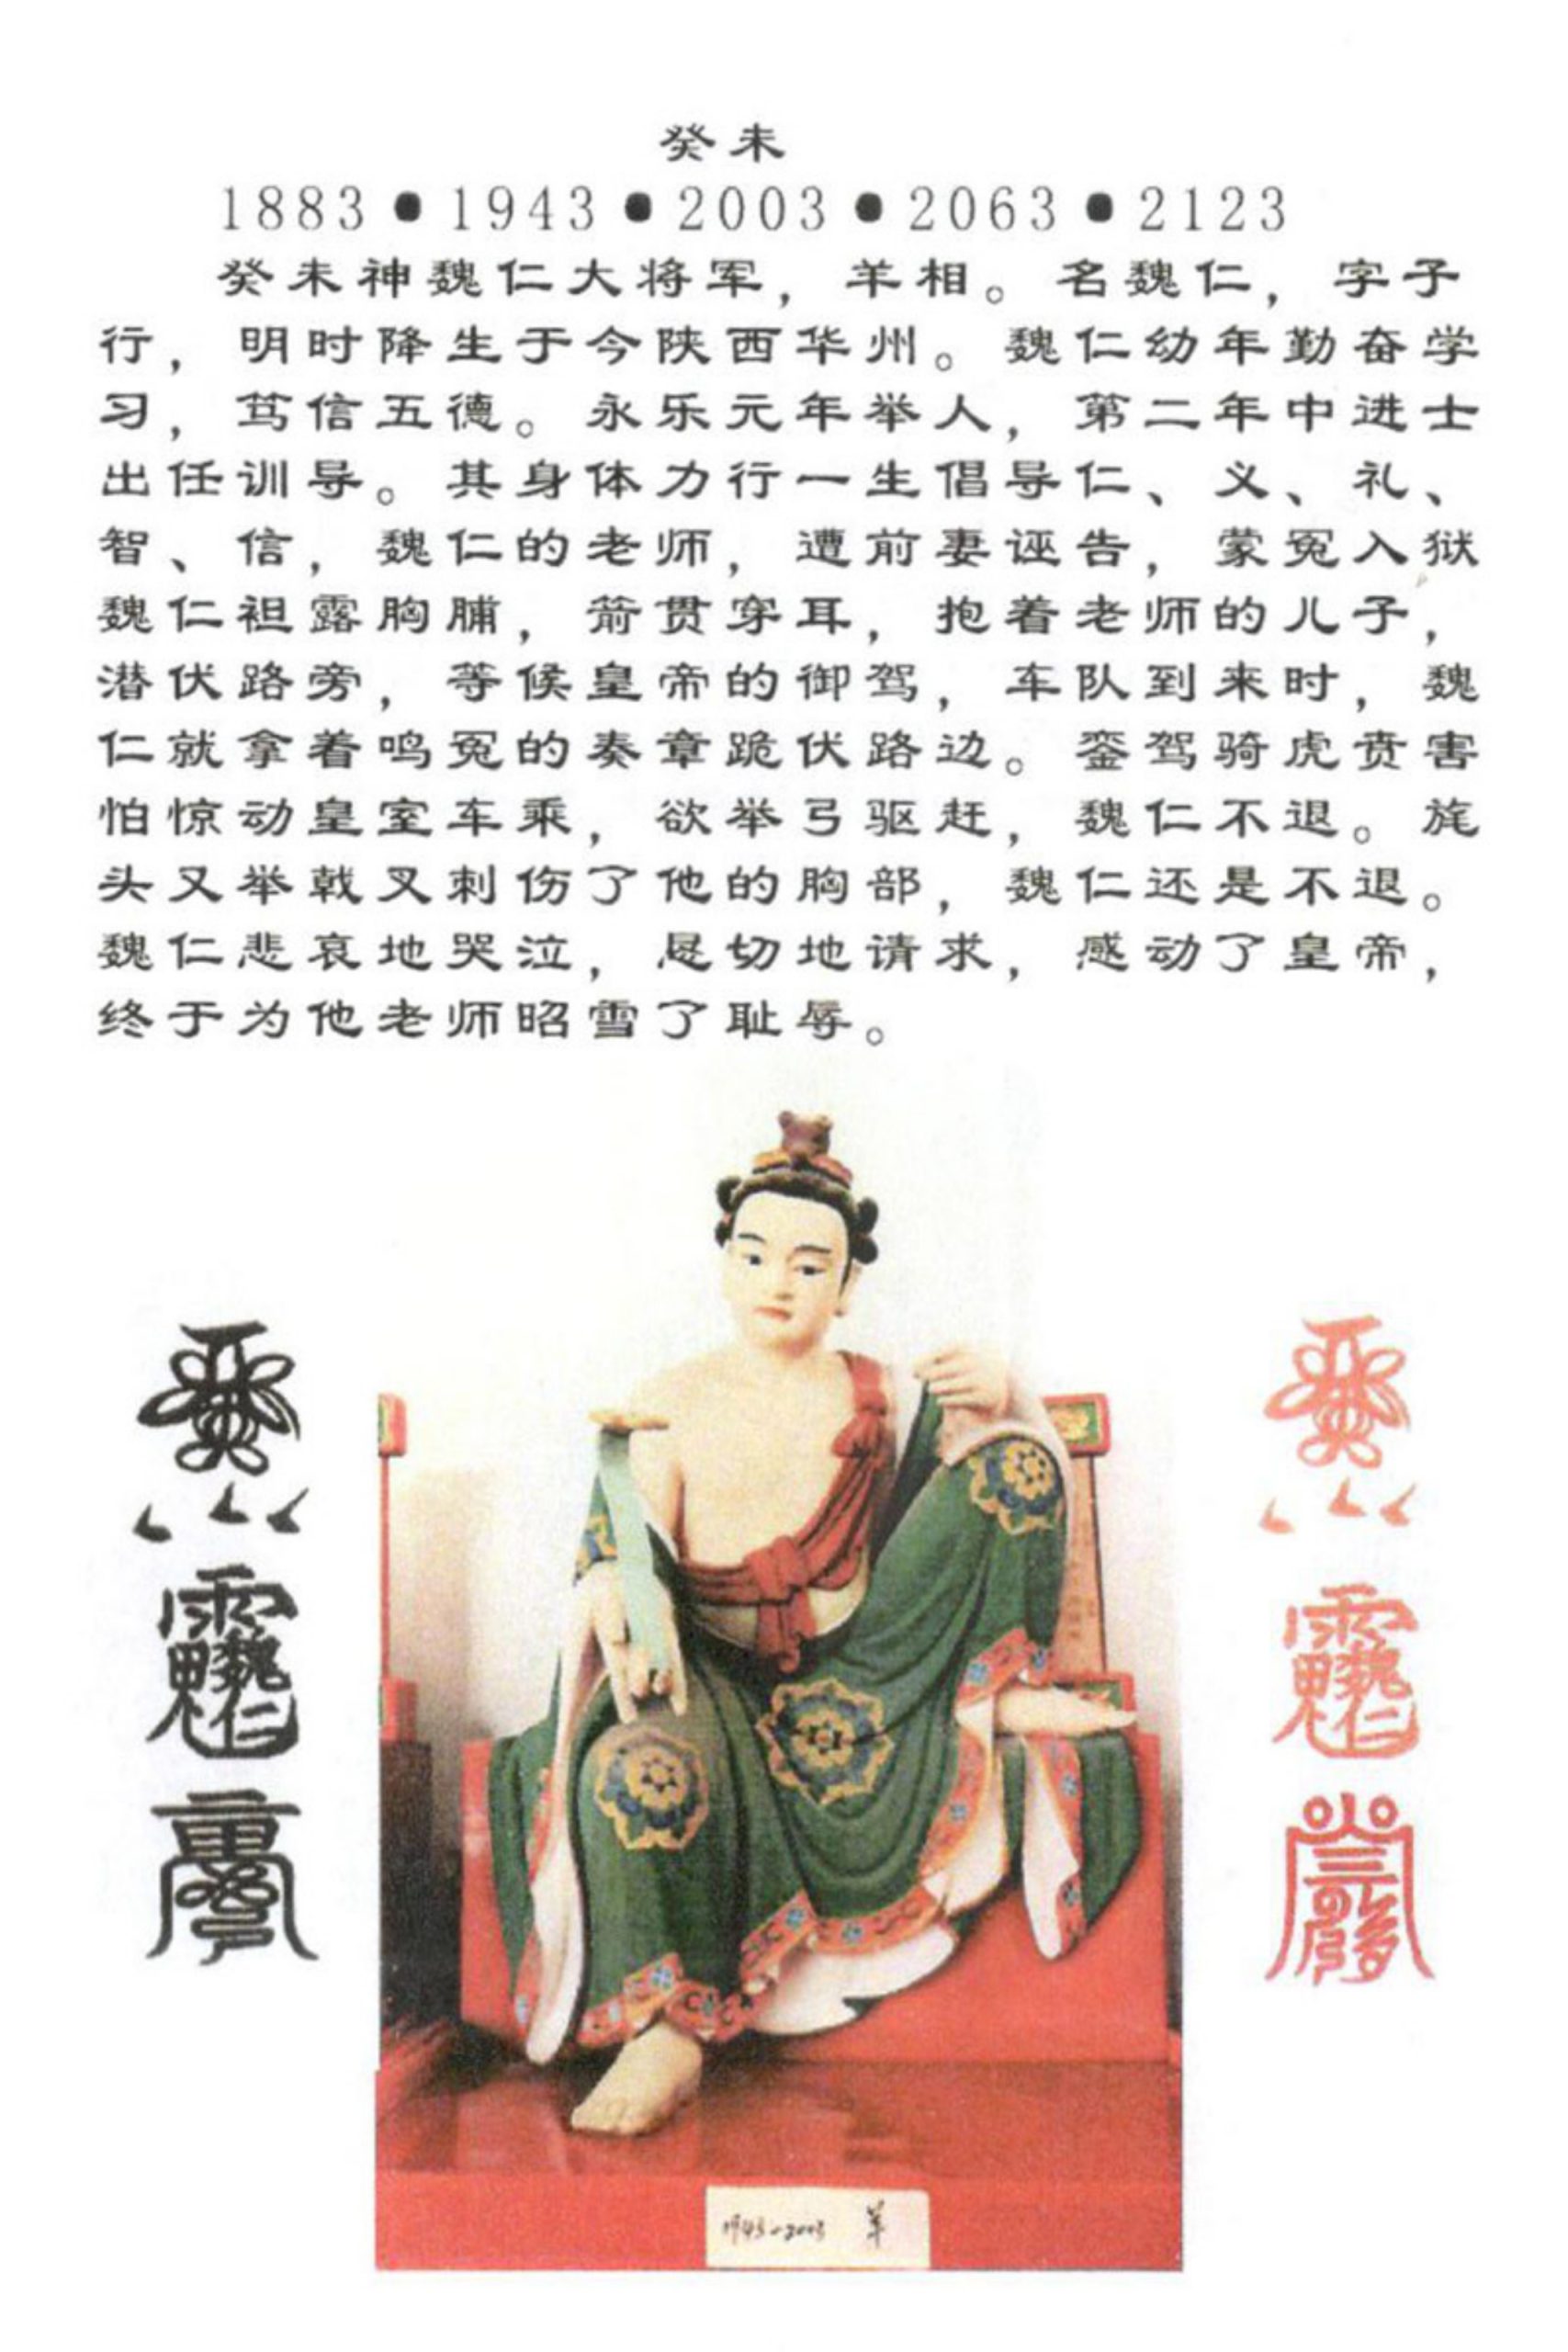 癸未
1883●1943●2003●2063●2123
癸未神魏仁大将军，羊相。名魏仁，字子
行，明时降生于今陕西华州。魏仁幼年勤奋学
习，笃信五德。永乐元年举人，第二年中进士
出任训导。其身体力行一生倡导仁、义、礼、
智、信，魏仁的老师，遭前妻诬告，蒙冤入狱
魏仁袒露胸脯，箭贯穿耳，抱着老师的儿子，
潜伏路旁，等候皇帝的御驾，车队到来时，魏
仁就拿着鸣冤的奏章跪伏路边。銮驾骑虎贲害
怕惊动皇室车乘，欲举弓驱赶，魏仁不退。旄
头又举戟叉刺伤了他的胸部，魏仁还是不退。
魏仁悲哀地哭泣，恳切地请求，感动了皇帝，
终于为他老师昭雪了耻辱。
1943-2003 羊